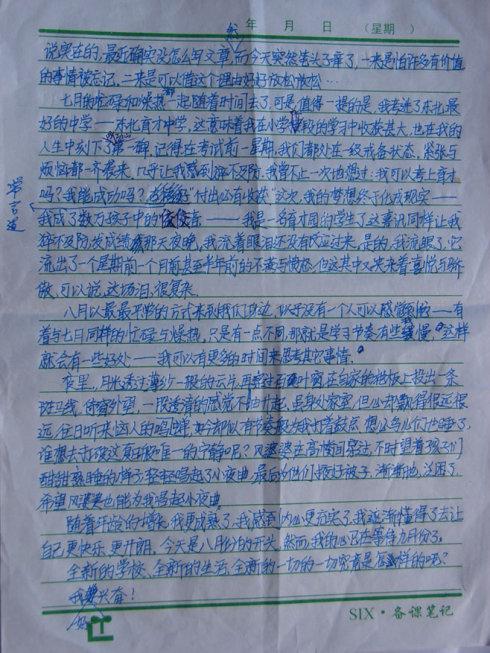 年 月 日 (星期 )
然
说实在的,最近确实没怎么写文章,而今天突然笔头了痒了,一来是怕许多有价值
的事情被忘记,二来是可以借这个理由好好放松放松…
七月的忙碌和燥热一起随着时间去了,可是,值得一提的是,我考进了东北最
好的中学——东北育才中学,这意味着我在小学阶段的学习中收获甚大,也在我的
人生中刻下了第一碑,记得在考试前一星期,我们都处在一级戒备状态,紧张与
烦恼都一齐袭来,几乎让我感到猝不及防,我曾不止一次地想过:我可以考上育才
吗?我能成功吗?"付出必有收获"这次,我的梦想终于化成现实——
常言道
我成了数万孩子中的佼佼者——我是一名育才园的学生了,这喜讯同样让我
猝不及防,发成绩那天夜晚,我流着眼泪还没有反应过来,是的,我流眼了,它
流出了一个星期前一个月前甚至半年前的不满与愤怒,但这其中又夹杂着喜悦与骄
傲,可以说,这场泪,很复杂。
八月以最最平常的方式来到我们身边,似乎没有一个人可以感觉到他——有
着与七月同样的忙碌与燥热,只是有一点不同,那就是学习节奏有些缓慢,这样
就会有一些好处——我可以有更多的时间来思考其它事情。
夜里,月光透过薄纱一般的云片,再穿过百叶窗,在自家的地板上投出一条
斑马线,倚窗外望,一股透清的感觉不由升起,虽身处家室,但心却飘得很远很
远,往日听来恼人的鸣蝉,如今却似有节奏般为我打着鼓点,想必鸟儿们也睡了,
谁想去打破这夏日夜晚唯一的宁静呢?风婆婆在高楼间穿过,不时望着孩子们
甜甜熟睡的样子,轻轻唱起了小夜曲,最后为他们掖好被子,渐渐地,我困了,
希望风婆婆也能为我唱起小夜曲。
随着开学的增长,我更成熟了,我感到内心更充实了,我逐渐懂得了去让
自己更快乐,更开朗,今天是八月份的开头,然而,我的心已在等待九月份了。
全新的学校、全新的生活、全新的一切的一切究竟是怎样的呢?
我好兴奋!
SIX·备课笔记